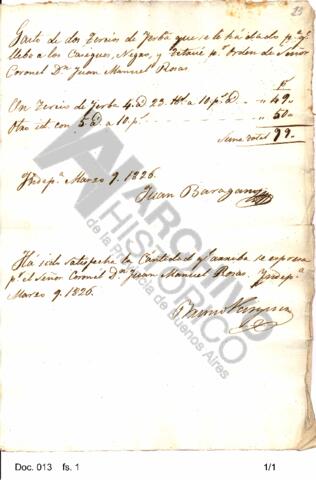 23
Gasto de dos Tercios de Yerba que se le há dado p.ª q.e
llebe a los Casiques, Negro, y p.r orden de Señor
Coronel D.n Juan Manuel Rosas
Un Tercio de Yerba 4. @ 23. lbs a 10 p.s @ 49
Otro id. con 5 @ a 10 p.s 50
Suma total 99.
Yndep.a Marzo 9. 1826.
Juan
Há sido satisfecha la Cantidad q.e arriba se expresa
p.r el Señor Coronel D.n Juan Manuel Rosas. Yndep.a
Marzo 9. 1826.
ARCHIVO
HISTORICO
de la Provincia de Buenos Aires
Doc. 013 fs. 1 1/1